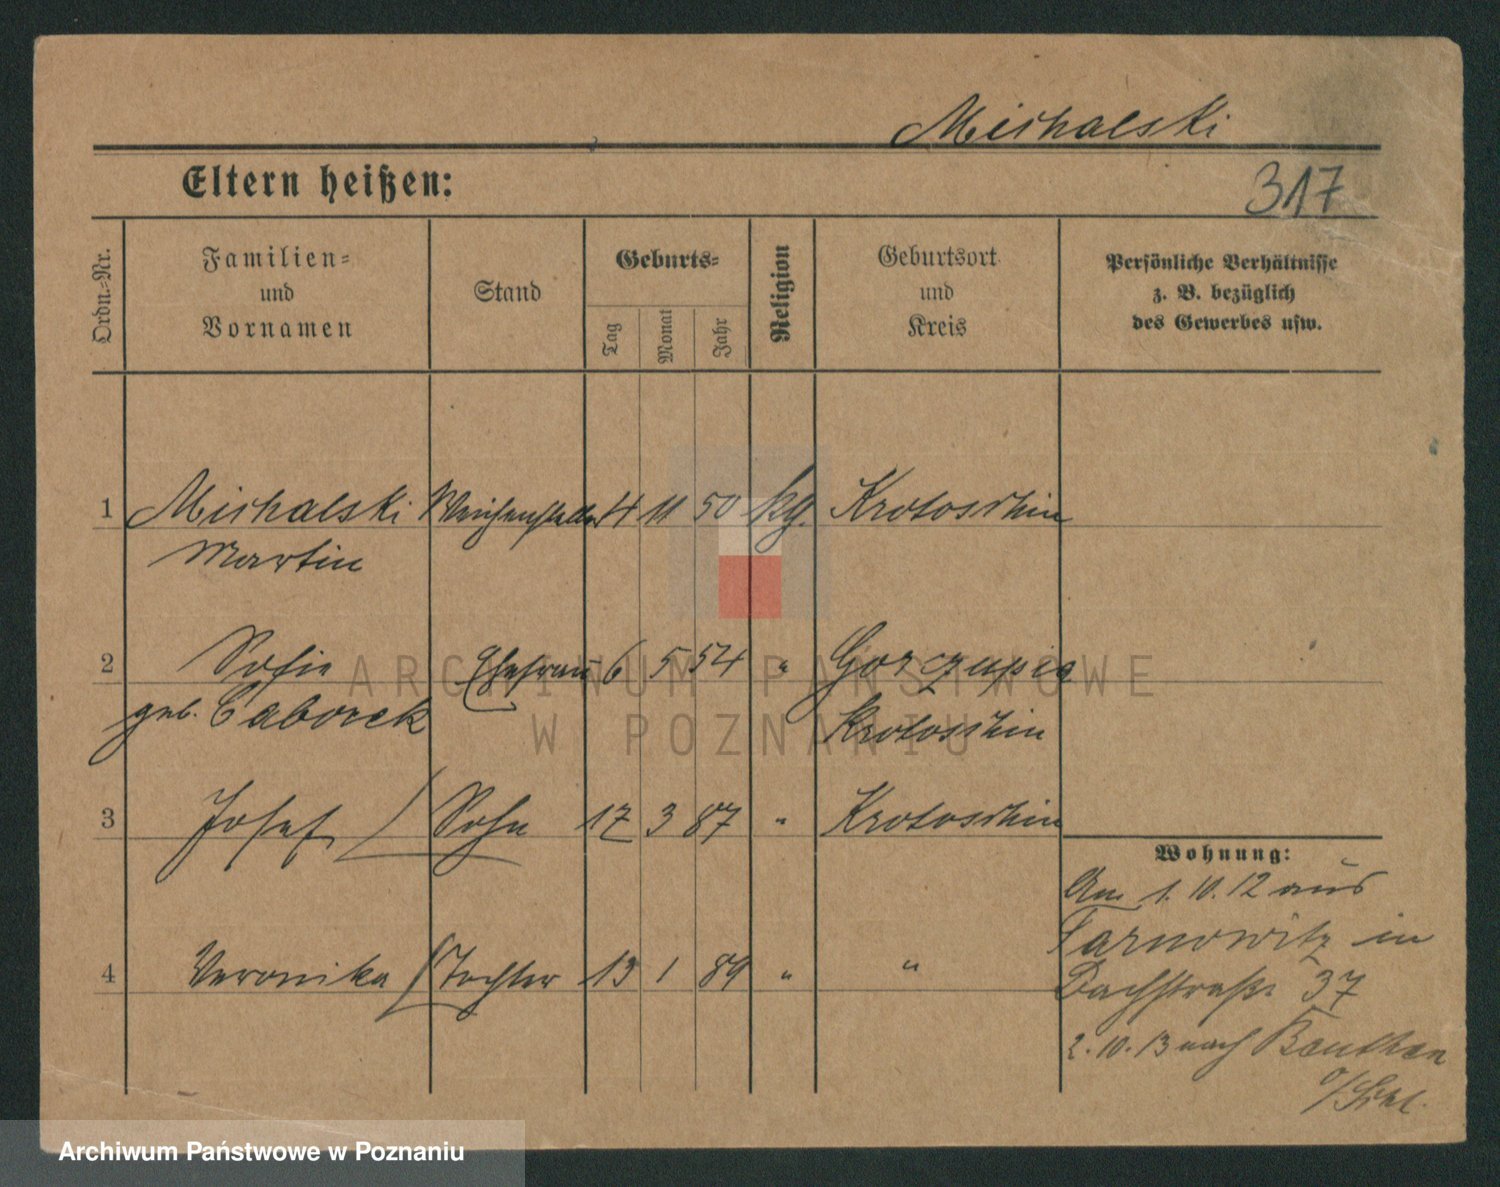 Michalski
Eltern heißen:
317
Ordn.-Nr.
Familien-
und
Vornamen
Stand
Geburts-
Tag
Monat
Jahr
Religion
Geburtsort
und
Kreis
Persönliche Verhältnisse
z. B. bezüglich
des Gewerbes usw.
1 Michalski Weichensteller 4 11 50 kg. Krotoschin
Martin
2 Sofie Ehefrau 6 5 54 " Gorzupia
geb. Taborek Krotoschin
3 Josef Sohn 12 3 87 " Krotoschin
Wohnung:
Am 1.10.12 aus
Tarnowitz in
4 Veronika Tochter 13 1 89 " "
Bachstraße 37
2.10.13 nach Beuthen
o/Schl.
ARCHIWUM PAŃSTWOWE
W POZNANIU
Archiwum Państwowe w Poznaniu